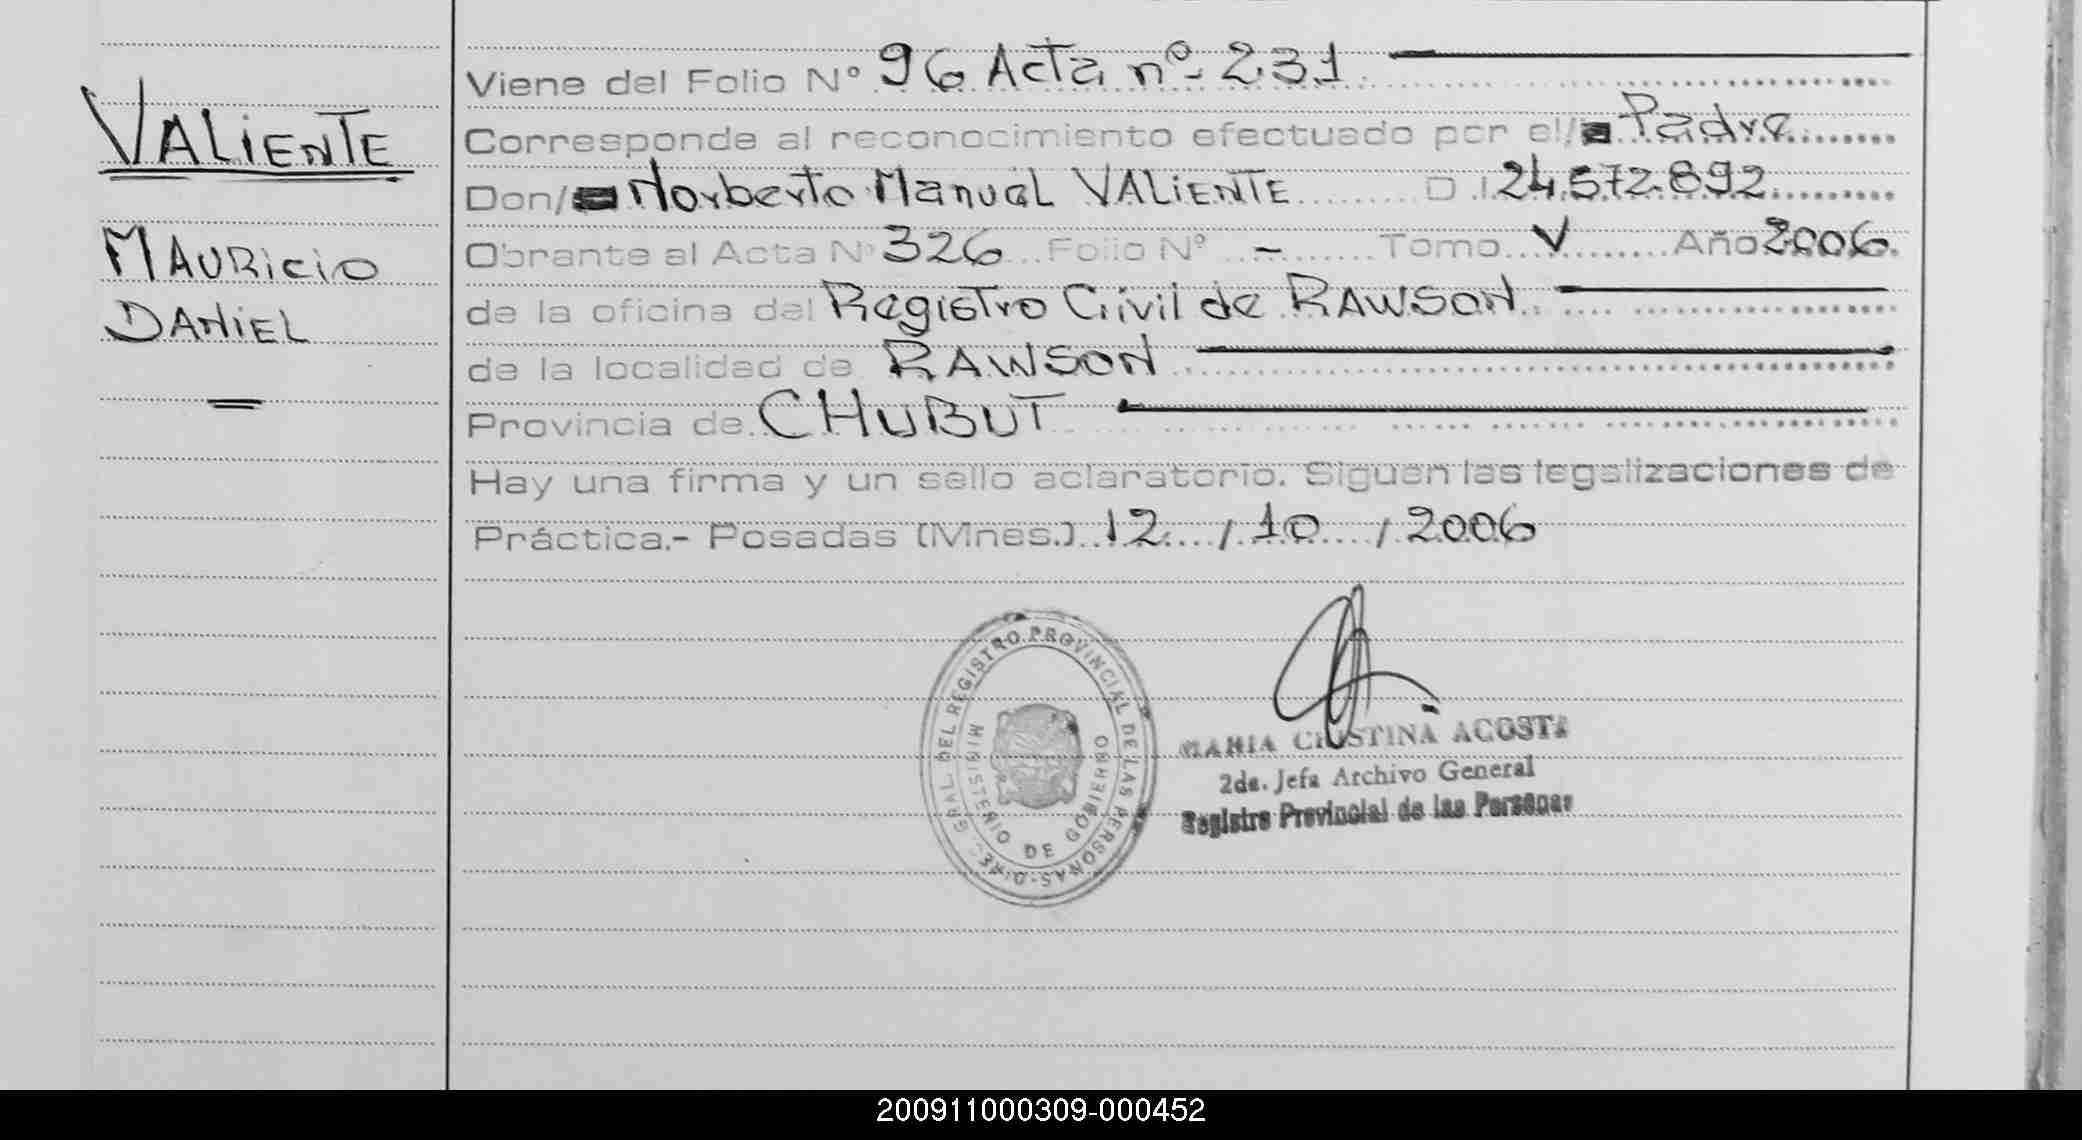 VALIENTE
MAURICIO
DANIEL
Viene del Folio Nº 96 Acta nº 231
Corresponde al reconocimiento efectuado por el/ Padre
Don/ Norberto Manuel VALIENTE D.I. 24.572.892
Obrante al Acta Nº 326 Folio Nº - Tomo V Año 2006
de la oficina del Registro Civil de RAWSON
de la localidad de RAWSON
Provincia de CHUBUT
Hay una firma y un sello aclaratorio. Siguen las legalizaciones de
Práctica.- Posadas (Mnes.) 12 / 10 / 2006
GRAL. DEL REGISTRO PROVINCIAL DE LAS PERSONAS-DIREC
MINISTERIO DE GOBIERNO
MARIA CRISTINA ACOSTA
2da. Jefa Archivo General
Registro Provincial de las Personas
200911000309-000452